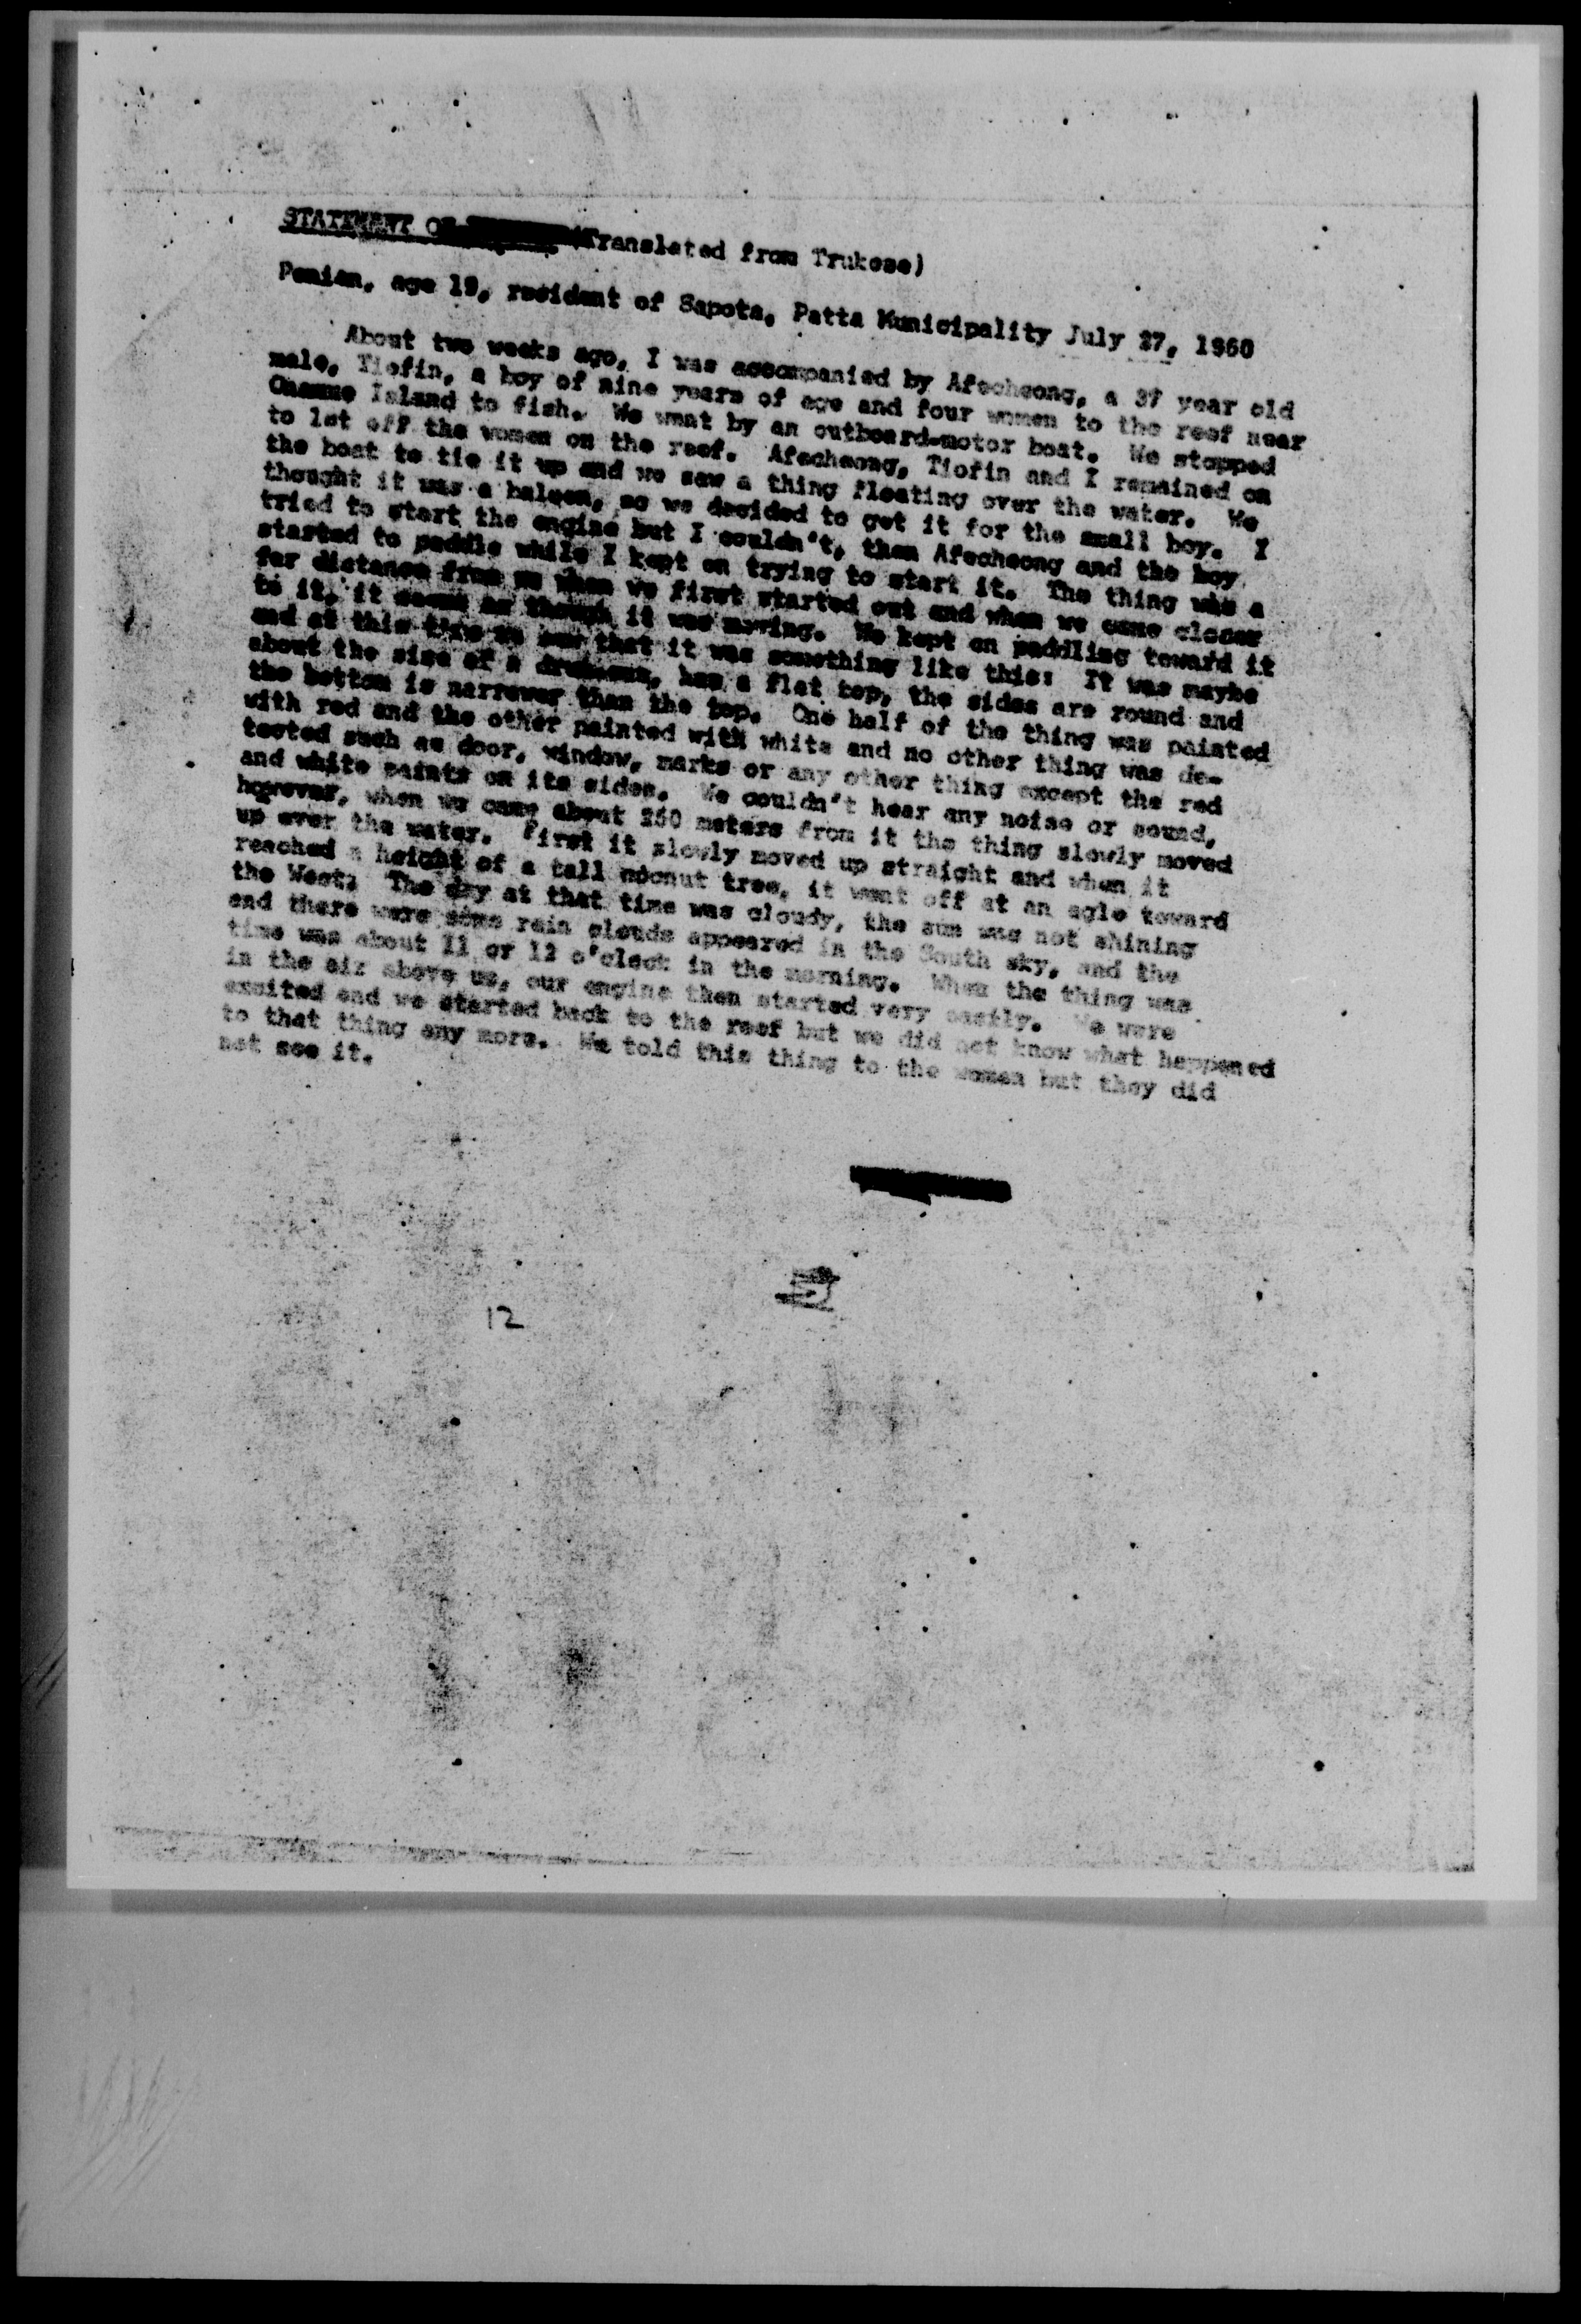 STATEMENT OF (Translated from Trukese)
Penien, age 19, resident of Sapota, Patta Municipality July 27, 1960
About two weeks ago, I was accompanied by Afecheong, a 37 year old
male, Tiofin, a boy of nine years of age and four women to the reef near
Island to fish. We went by an outboard-motor boat. We stopped
to let off the women on the reef. Afecheong, Tiofin and I remained on
the boat to tie it up and we saw a thing floating over the water. We
thought it was a baloon, so we decided to get it for the small boy. I
tried to start the engine but I couldn't, then Afecheong and the boy
started to paddle while I kept on trying to start it. The thing was a
far distance from us when we first started out and when we came closer
to it, it seems as though it was moving. We kept on paddling toward it
and at this time we saw that it was something like this: It was maybe
about the size of a , has a flat top, the sides are round and
the bottom is narrower than the top. One half of the thing was painted
with red and the other painted with white and no other thing was de-
tected such as door, window, marks or any other thing except the red
and white paints on its sides. We couldn't hear any noise or sound,
however, when we came about 250 meters from it the thing slowly moved
up over the water. First it slowly moved up straight and when it
reached a height of a tall coconut tree, it went off at an agle toward
the West. The sky at that time was cloudy, the sun was not shining
and there were some rain clouds appeared in the South sky, and the
time was about 11 or 12 o'clock in the morning. When the thing was
in the air above us, our engine then started very easily. We were
excited and we started back to the reef but we did not know what happened
to that thing any more. We told this thing to the women but they did
not see it.
12